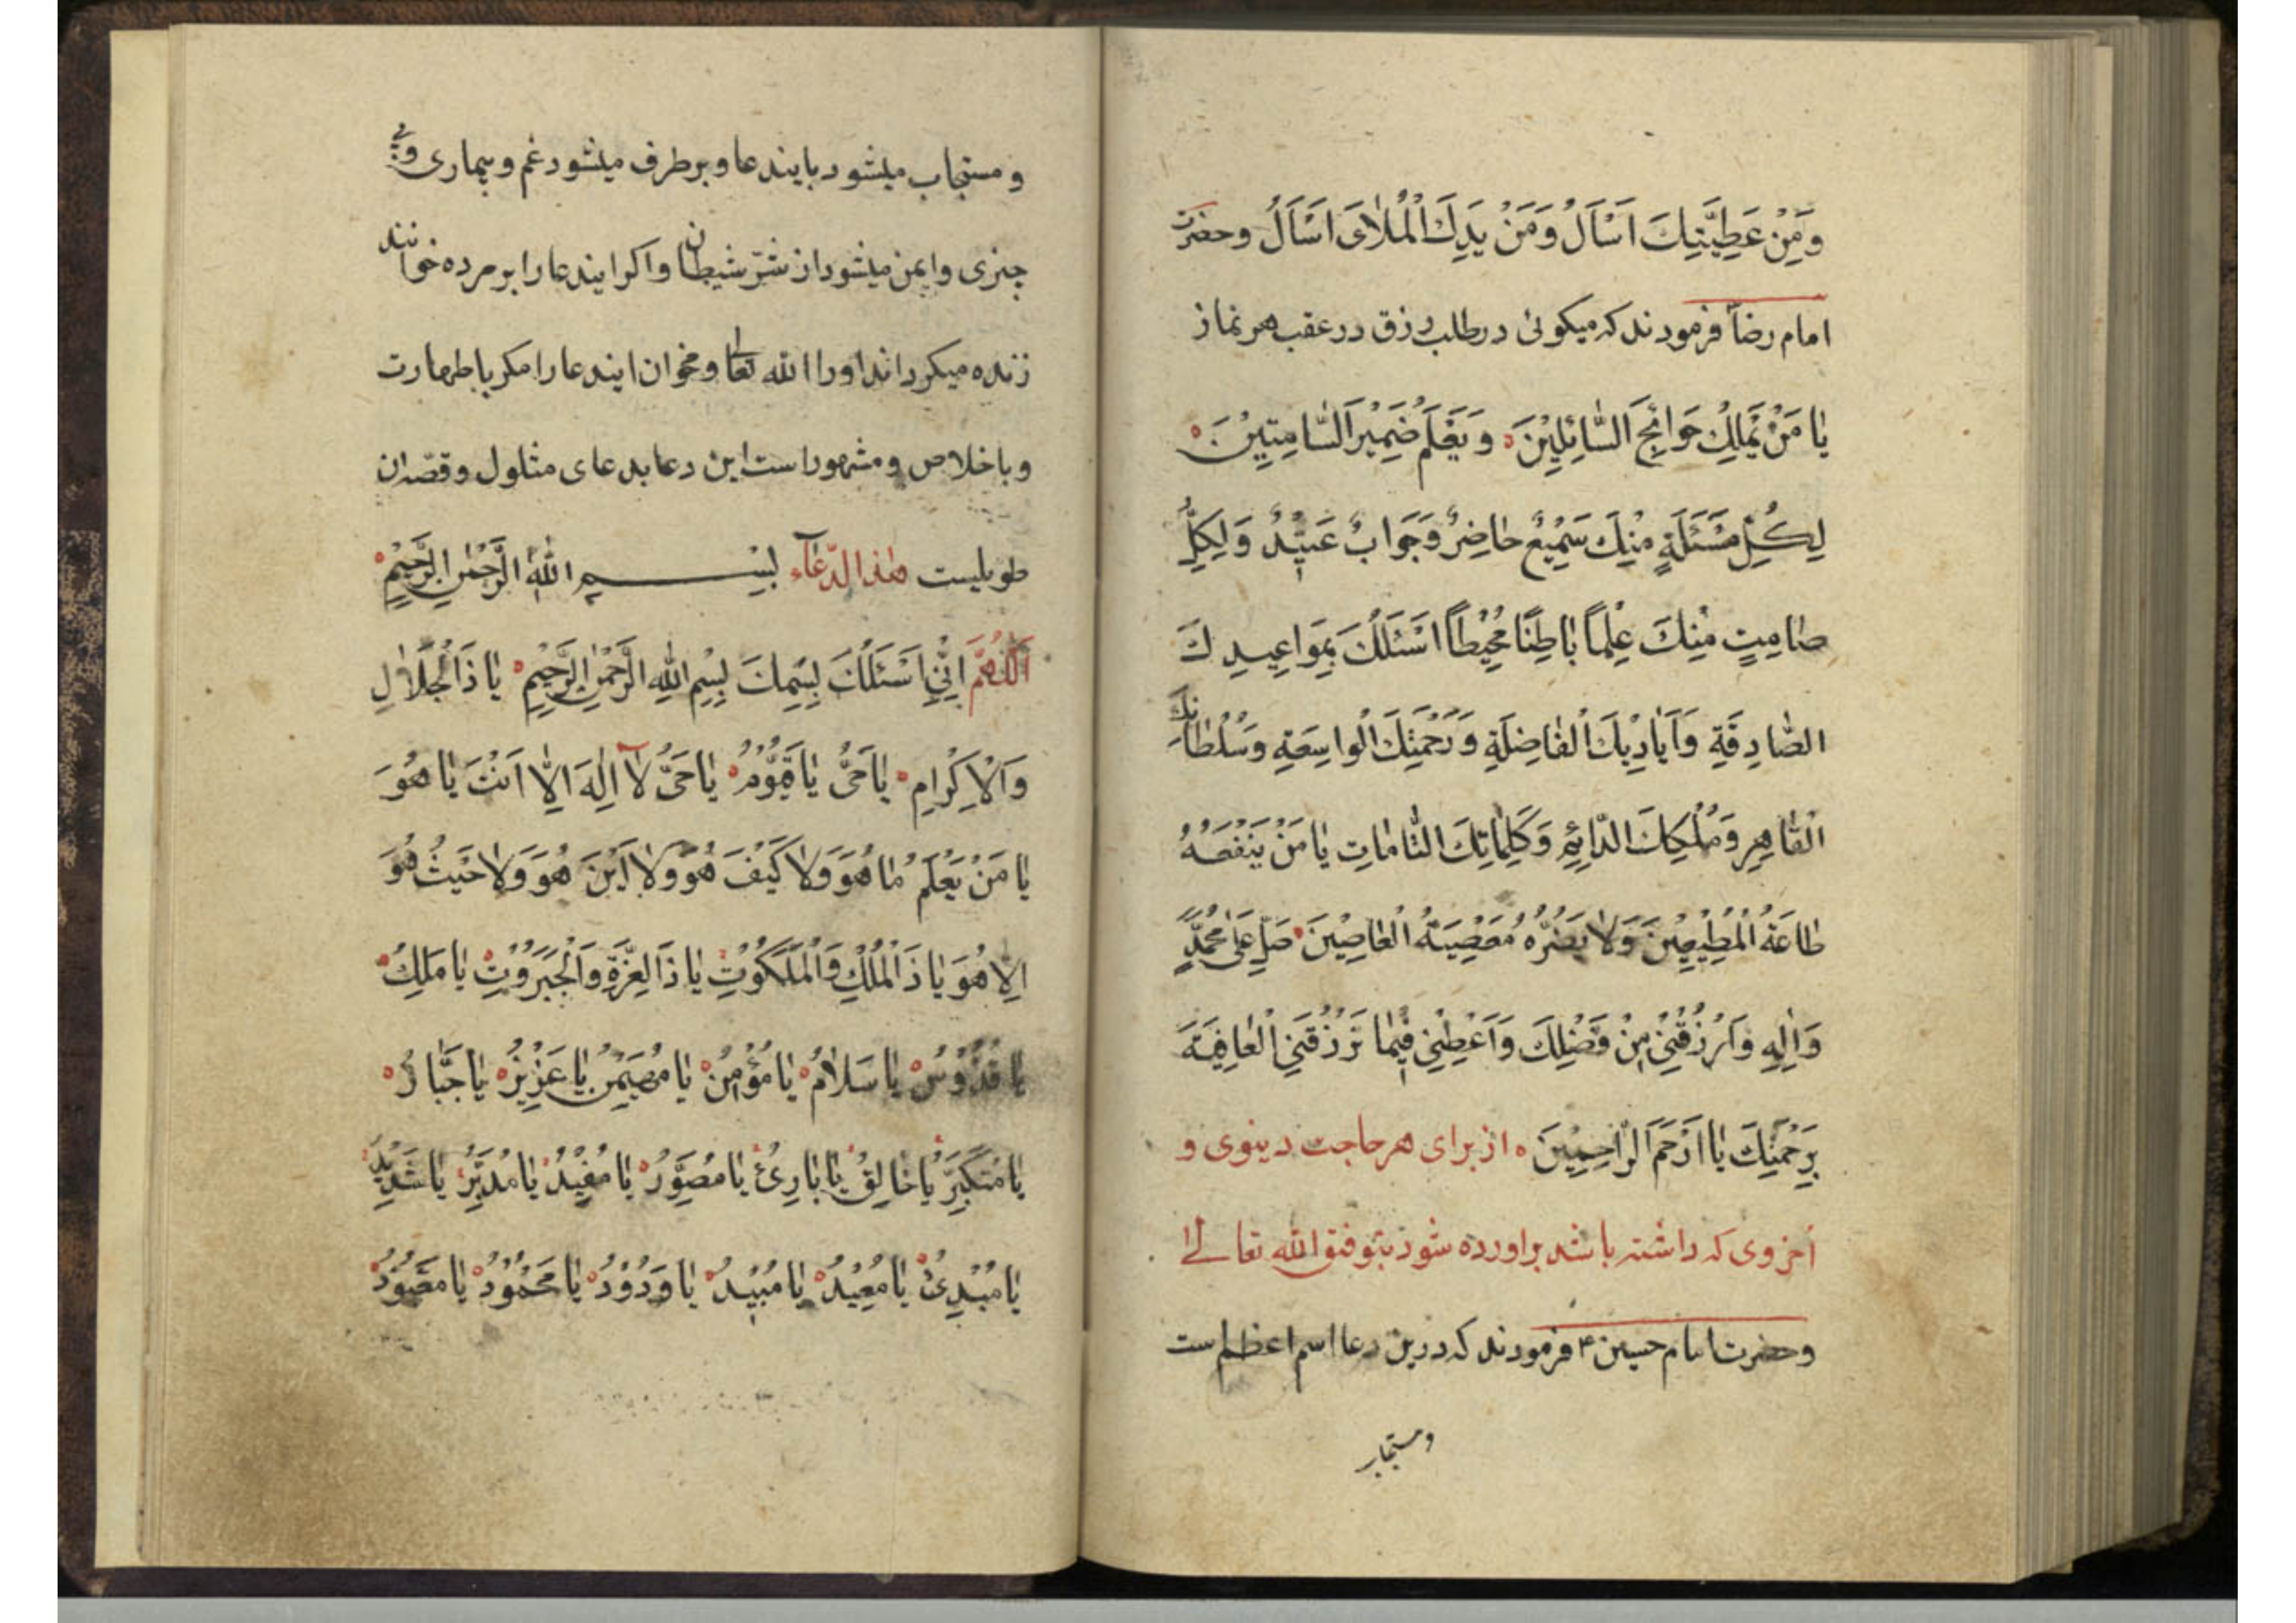 وَمِنْ عَطِيَّتِكَ اَسْاَلُ وَمَنْ يَدِكَ الْمُلْاٰىَ اَسْاَلُ وحضرت
امام رضا فرمودند که میکوئی در طلب رزق در عقب هر نماز
يٰا مَنْ يَمْلِكُ حَوٰائِجَ السّٰائِلِيْنَ وَيَعْلَمُ ضَمِيْرَ السّٰامِتِيْنَ
لِكُلِّ مَسْئَلَةٍ مِنْكَ سَمِيْعٌ حٰاضِرٌ وَجَوٰابٌ عَتِيْدٌ وَلِكُلِّ
صٰامِتٍ مِنْكَ عِلْماً بٰاطِنًا مُحِيْطاً اَسْئَلُكَ بِمَوٰاعِيدِكَ
الصّٰادِقَةِ وَاَيٰادِيْكَ الْفٰاضِلَةِ وَرَحْمَتِكَ الْوٰاسِعَةِ وَسُلْطٰانِكَ
الْقٰاهِرِ وَمُلْكِكَ الدّٰائِمِ وَكَلِمٰاتِكَ التّٰامّٰاتِ يٰا مَنْ يَنْفَعُهُ
طٰاعَةُ الْمُطِيْعِيْنَ وَلٰا يَضُرُّهُ مَعْصِيَةُ الْعٰاصِيْنَ صَلِّ عَلٰى مُحَمَّدٍ
وَاٰلِهِ وَارْزُقْنِيْ مِنْ فَضْلِكَ وَاَعْطِنِيْ فِيْمٰا تَرْزُقُنِي الْعٰافِيَةَ
بِرَحْمَتِكَ يٰا اَرْحَمَ الرّٰاحِمِيْنَ از برای هر حاجت دینوی و
اخروی که داشته باشد براورده شود بتوفیق الله تعالی
وحضرت امام حسین ۴ فرمودند که درین دعا اسم اعظم است
ومستجاب
و مستجاب میشود بایندعا و برطرف میشود غم و بیماری و
چیزی وایمن میشود از شرّ شیطان واکر ایندعا را بر مرده خوانند
زنده میکرداند اورا الله تعا ومخوان ایندعا را مکر باطهارت
وباخلاص ومشهور است این دعا بدعای مثلول وقصّه ان
طویلیست هٰذا الدّعٰآء بِسْمِ اللّٰهِ الرَّحْمٰنِ الرَّحِيْمِ
اَللّٰهُمَّ اِنِّيْ اَسْئَلُكَ بِسْمِكَ بِسْمِ اللّٰهِ الرَّحْمٰنِ الرَّحِيْمِ يٰا ذَا الْجَلٰالِ
وَالْاِكْرٰامِ يٰا حَىُّ يٰا قَيُّوْمُ يٰا حَىُّ لٰآ اِلٰهَ اِلّٰا اَنْتَ يٰا هُوَ
يٰا مَنْ يَعْلَمُ مٰا هُوَ وَلٰا كَيْفَ هُوَ وَلٰا اَيْنَ هُوَ وَلٰا حَيْثُ هُوَ
اِلّٰا هُوَ يٰا ذَا الْمُلْكِ وَالْمَلَكُوْتِ يٰا ذَا الْعِزَّةِ وَالْجَبَرُوْتِ يٰا مَلِكُ
يٰا قُدُّوْسُ يٰا سَلٰامُ يٰا مُؤْمِنُ يٰا مُهَيْمِنُ يٰا عَزِيْزُ يٰا جَبّٰارُ
يٰا مُتَكَبِّرُ يٰا خٰالِقُ يٰا بٰارِئُ يٰا مُصَوِّرُ يٰا مُفِيْدُ يٰا مُدَبِّرُ يٰا شَدِيْدُ
يٰا مُبْدِئُ يٰا مُعِيْدُ يٰا مُبِيْدُ يٰا وَدُوْدُ يٰا مَحْمُوْدُ يٰا مَعْبُوْدُ